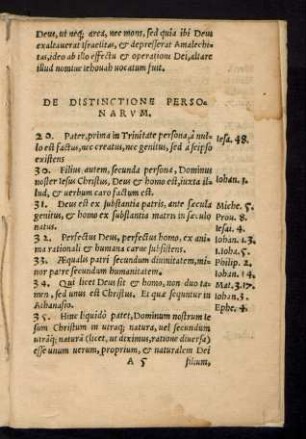 Deus, ut neq; area, nec mons, sed quia ibi Deus
exaltauerat Israelitas, & depresserat Amalechi-
tas, ideo ab illo effectu & operatione Dei, altare
illud nomine Iehouah uocatum fuit.
DE DISTINCTIONE PERSO-
NARVM.
29. Pater, prima in Trinitate persona, à nul-
lo est factus, nec creatus, nec genitus, sed à seipso Iesa. 48.
existens
30. Filius autem, secunda persona, Dominus
noster Iesus Christus, Deus & homo est, iuxta il- Iohan. 1.
lud, & uerbum caro factum est.
31. Deus est ex substantia patris, ante sæcula Miche. 5.
genitus, & homo ex substantia matris in sæculo Prou. 8.
natus. Iesai. 4.
32. Perfectus Deus, perfectus homo, ex ani- Iohan. 1.3.
ma rationali & humana carne subsistens. 1.Ioha. 5.
33. Æqualis patri secundum diuinitatem, mi- Philip. 2.
nor patre secundum humanitatem. Iohan. 14.
34. Qui licet Deus sit & homo, non duo ta- Mat. 3.17.
men, sed unus est Christus. Et quæ sequuntur in Iohan. 3.
Athanasio. Ephe. 4.
35. Hinc liquidò patet, Dominum nostrum Ie
sum Christum in utraq; natura, uel secundum
utrāq; naturā (licet, ut diximus, ratione diuersa)
esse unum uerum, proprium, & naturalem Dei
A 5 filium,